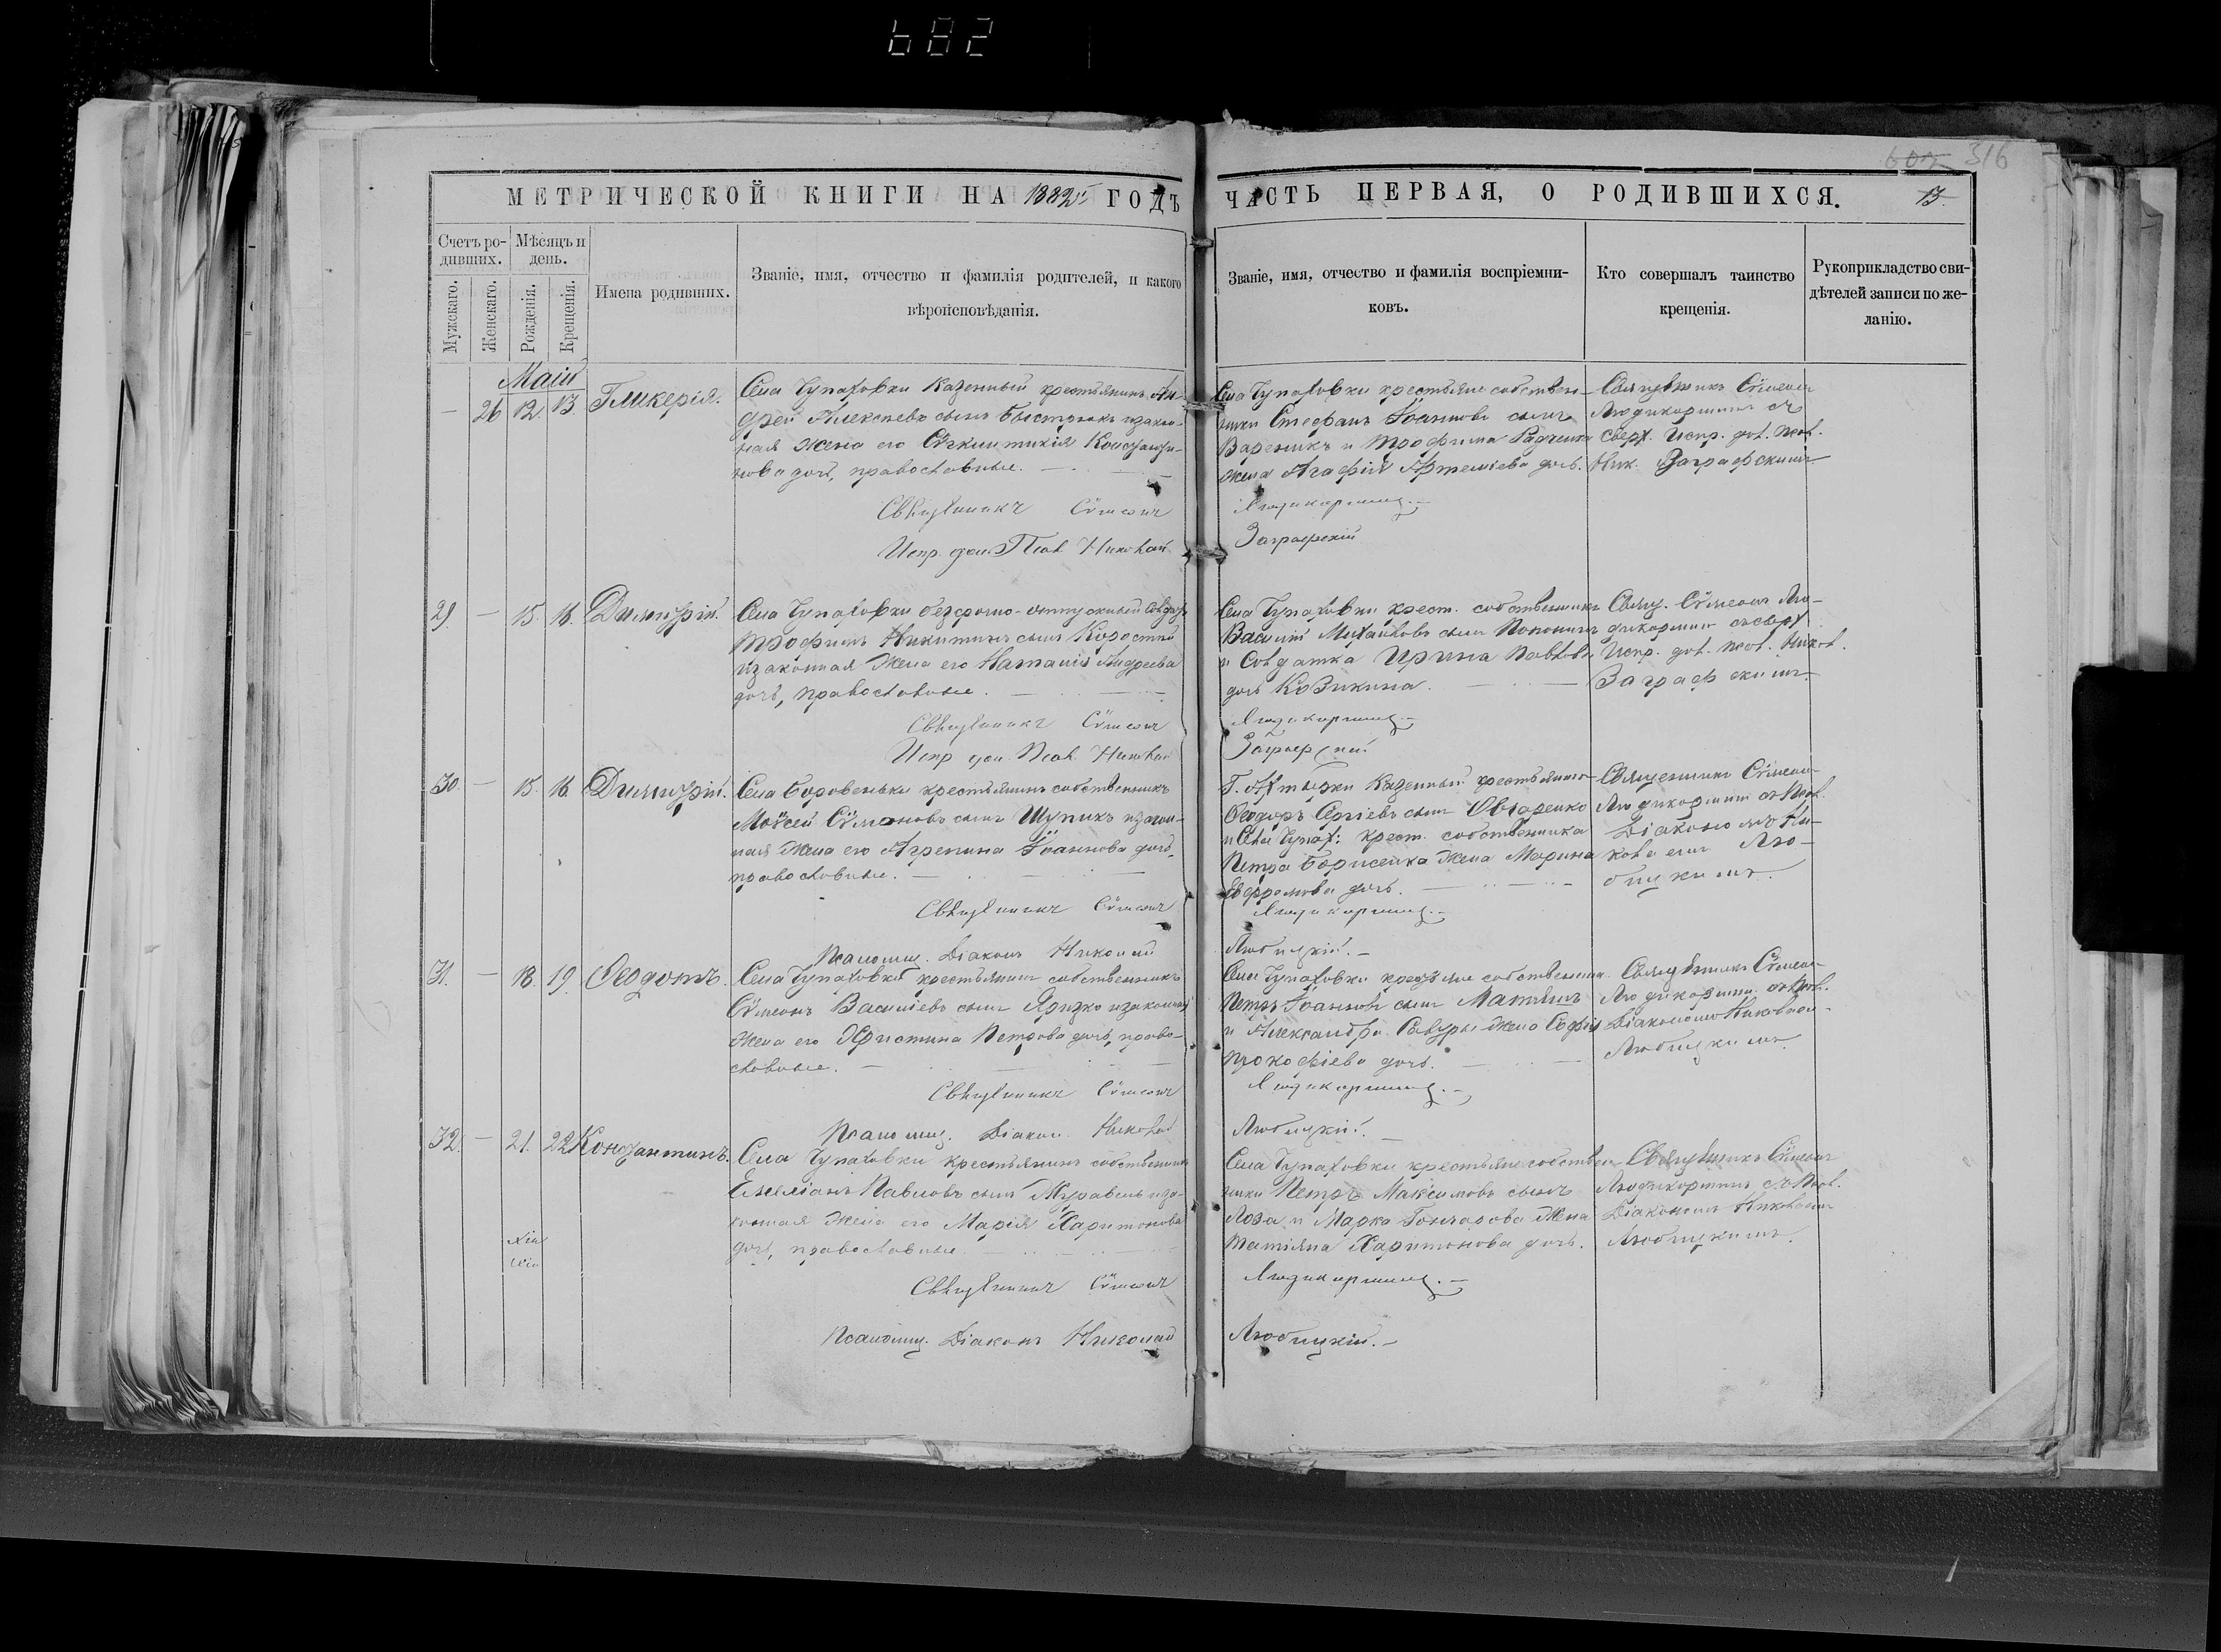 682
602 316
МЕТРИЧЕСКОЙ КНИГИ НА 1882й ГОДЪ
ЧАСТЬ ПЕРВАЯ, О РОДИВШИХСЯ.
13.
Счетъ ро-
дившихъ.
Мѣсяцъ и
день.
Мужскаго.
Женскаго.
Рожденія.
Крещенія.
Имена родившихъ.
Званіе, имя, отчество и фамилія родителей, и какого
вѣроисповѣданія.
Званіе, имя, отчество и фамилія воспріемни-
ковъ.
Кто совершалъ таинство
крещенія.
Рукоприкладство сви-
дѣтелей записи по же-
ланію.
Маій
— 26 12. 13. Гликерія.
Села Чупаховки казенный крестьянинъ Ан-
дрей Алексѣевъ сынъ Быстрикъ и закон-
ная жена его Сѵнклитикія Константи-
нова дочь, православные.
Священникъ Сѵмеонъ
Испр. дол. Псал. Николай
Села Чупаховки крестьяне собствен-
ники Стефанъ Іоанновъ сынъ
Вареникъ и Трофима Радченка
жена Агафія Артеміева дочь.
Людикорминъ.
Заграфскій
Священникъ Сѵмеонъ
Людикорминъ съ
сверх. Испр. дол. псал.
Ник. Заграфскимъ
29. — 15. 16. Димитрій.
Села Чупаховки безсрочно-отпускный солдатъ
Трофимъ Никитинъ сынъ Коростий
и законная жена его Наталія Андреева
дочь, православные.
Священникъ Сѵмеонъ
Испр. дол. Псал. Николай
Села Чупаховки крест. собственникъ
Василій Михайловъ сынъ
и Солдатка Ирина Павлова
дочь Козикина.
Людикорминъ.
Заграфскій
Свящ. Сѵмеонъ Лю-
дикорминъ съ сверх.
Испр. дол. псал. Никол.
Заграфскимъ.
30. — 15. 16. Димитрій.
Села Боровеньки крестьянинъ собственникъ
Моѵсей Сѵмоновъ сынъ Шупикъ и закон-
ная жена его Агрепина Іоаннова дочь,
православные.
Священникъ Сѵмеонъ
Псаломщ. Діаконъ Николай
Г. Ахтырки казенный крестьянинъ
Ѳеодоръ Сергіевъ сынъ Овчаренко
и Села Чупах: крест. собственника
Петра Борисенка жена Марина
Евфремова дочь.
Людикорминъ.
Любицкій.
Священникъ Сѵмеонъ
Людикорминъ съ Псал.
Діакономъ Ни-
колаемъ Лю-
бицкимъ.
31. — 18. 19. Ѳеодотъ.
Села Чупаховки крестьянинъ собственникъ
Сѵмеонъ Василіевъ сынъ Яризко и законная
жена его Христина Петрова дочь, право-
славные.
Священникъ Сѵмеонъ
Псаломщ. Діакон. Николай
Села Чупаховки крестьяне собственники
Петръ Іоанновъ сынъ Матяшъ
и Александра Савуры жена Софія
Прокофіева дочь.
Людикорминъ.
Любицкій.
Священникъ Сѵмеон-
Людикорминъ съ Псал.
Діакономъ Николаем-
Любицкимъ.
32. — 21. 22. Константинъ.
Села Чупаховки крестьянинъ собственникъ
Емеліанъ Павловъ сынъ Журавель и за-
конная жена его Марія Харитонова
дочь, православные.
Священникъ Сѵмеонъ
Псаломщ. Діаконъ Николай
Села Чупаховки крестьяне собствен-
ники Петръ Максимовъ сынъ
Лоза и Марка Гончарова жена
Татіяна Харитонова дочь.
Людикорминъ.
Любицкій.
Священникъ Сѵмеонъ
Людикорминъ съ Псал.
Діакономъ Николаемъ
Любицкимъ.